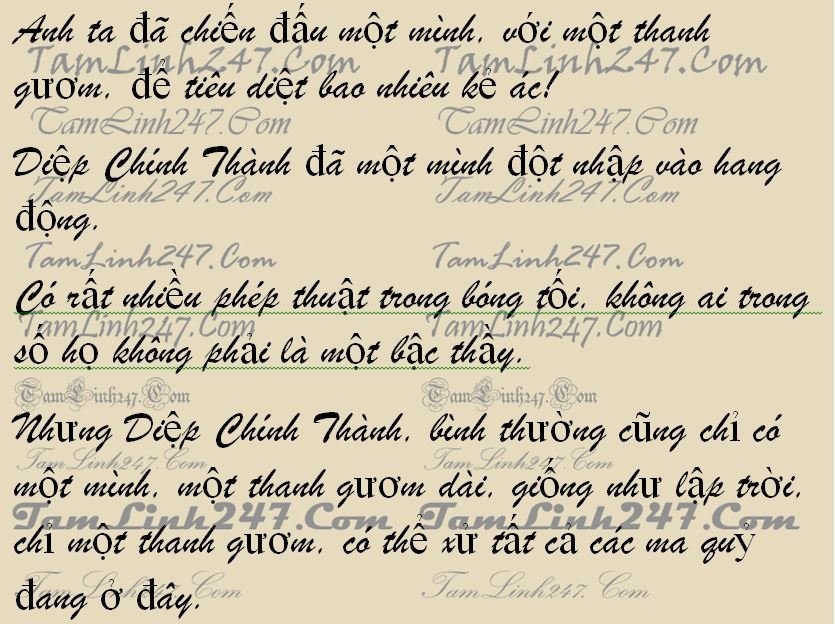 Anh ta đã chiến đấu một mình, với một thanh
TamLinh247.Com TamLinh247.Com
gươm, để tiêu diệt bao nhiêu kẻ ác!
TamLinh247.Com TamLinh247.Com
Diệp Chính Thành đã một mình đột nhập vào hang
TamLinh247.Com TamLinh247.Com
động.
TamLinh247.Com TamLinh247.Com
Có rất nhiều phép thuật trong bóng tối, không ai trong
TamLinh247.Com TamLinh247.Com
số họ không phải là một bậc thầy.
TamLinh247.Com TamLinh247.Com
Nhưng Diệp Chính Thành, bình thường cũng chỉ có
TamLinh247.Com TamLinh247.Com
một mình, một thanh gươm dài, giống như lập trời,
TamLinh247.Com TamLinh247.Com
chỉ một thanh gươm, có thể xử tất cả các ma quỷ
TamLinh247.Com TamLinh247.Com
đang ở đây.